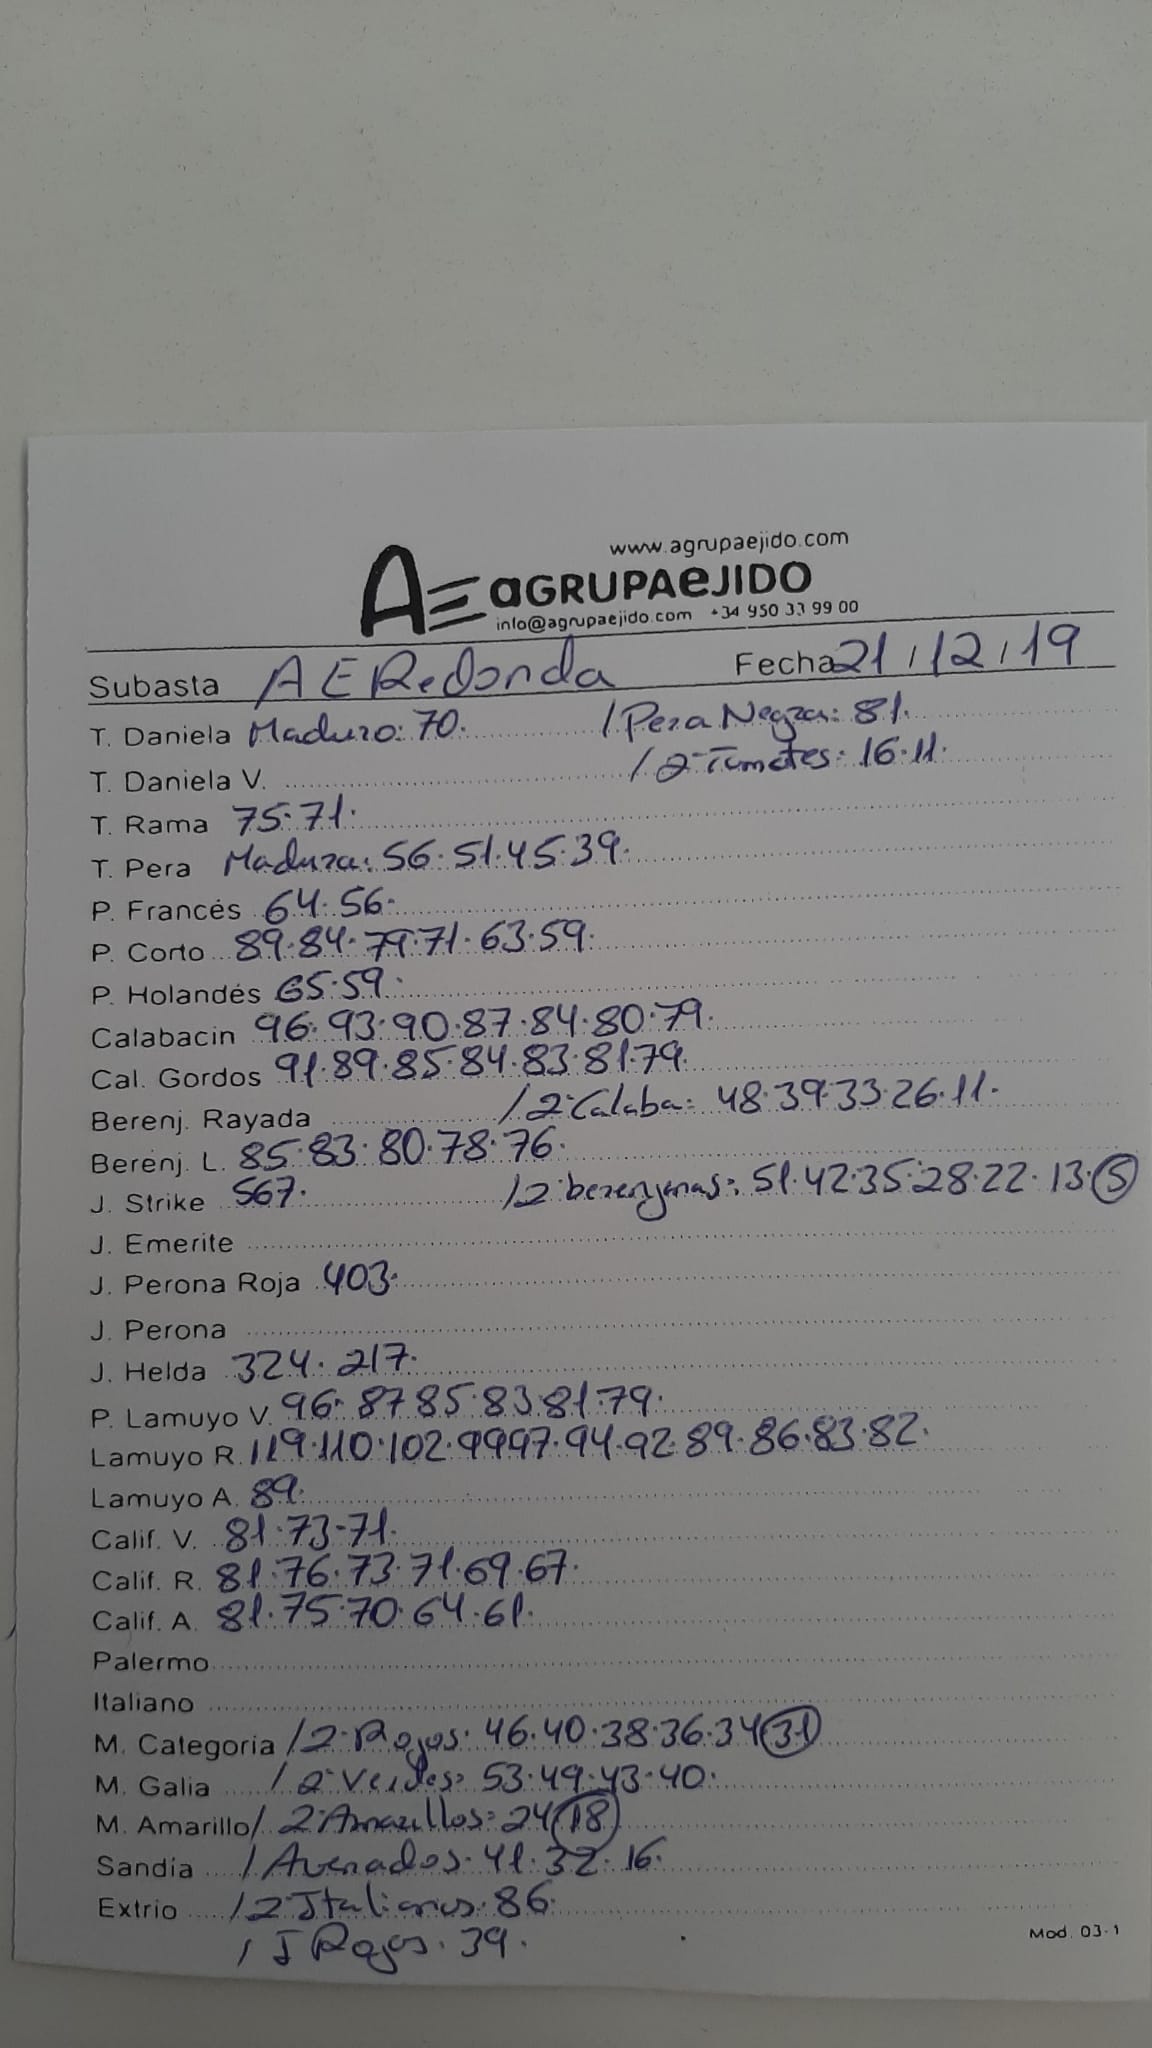 www.agrupaejido.com
AE aGRUPAeJIDO
info@agrupaejido.com +34 950 33 99 00
Subasta A E Redonda Fecha 21/12/19
T. Daniela Maduro: 70. / Pera Negra: 81.
T. Daniela V. / 2ª Tomates: 16.11.
T. Rama 75.71.
T. Pera Madura: 56.51.45.39.
P. Francés 64.56.
P. Corto 89.84.79.71.63.59.
P. Holandés 65.59.
Calabacin 96.93.90.87.84.80.79.
Cal. Gordos 91.89.85.84.83.81.79.
Berenj. Rayada / 2ª Calaba: 48.39.33.26.11.
Berenj. L. 85.83.80.78.76.
J. Strike 567. / 2ª berenjenas: 51.42.35.28.22.13.5
J. Emerite
J. Perona Roja 403.
J. Perona
J. Helda 324.217.
P. Lamuyo V. 96.87.85.83.81.79.
Lamuyo R. 119.110.102.99.97.94.92.89.86.83.82.
Lamuyo A. 89.
Calif. V. 81.73-71.
Calif. R. 81.76.73.71.69.67.
Calif. A. 81.75.70.64.61.
Palermo
Italiano
M. Categoria / 2ª Rojos: 46.40.38.36.34 31
M. Galia / 2ª Verdes: 53.49.43.40.
M. Amarillo / 2ª Amarillos: 24 18
Sandía / Asurados. 41.32.16.
Extrio / 2ª Italianos: 86.
/ I Rojos. 39.
Mod. 03-1